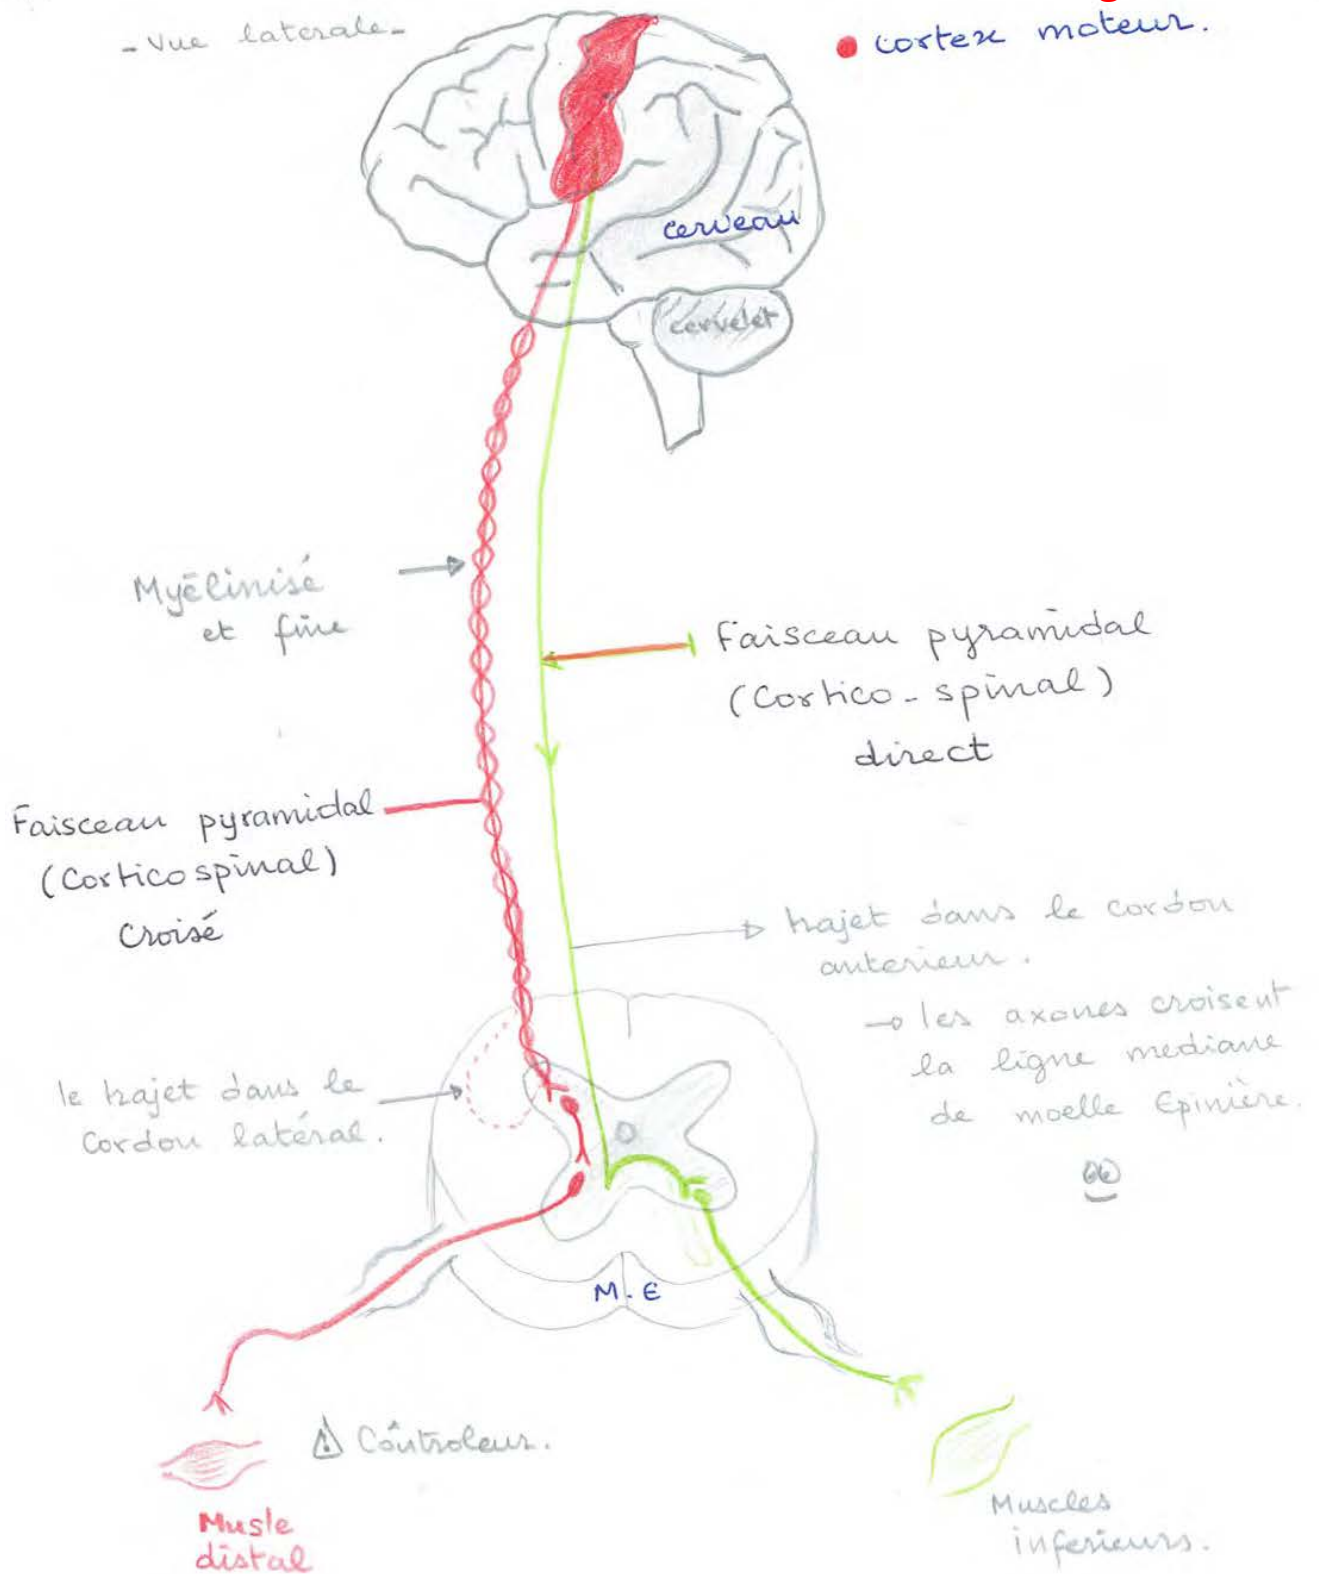 - Vue laterale -
cortex moteur.
cerveau
cervelet
Myēlinisé
et fine
Faisceau pyramidal
(Cortico - spinal)
direct
Faisceau pyramidal
(Cortico spinal)
Croisé
trajet dans le cordon
anterieur.
les axones croisent
la ligne mediane
de moelle Epinière.
le trajet dans le
Cordon latéral.
M. E
Contrôleur.
Musle
distal
Muscles
inferieurs.